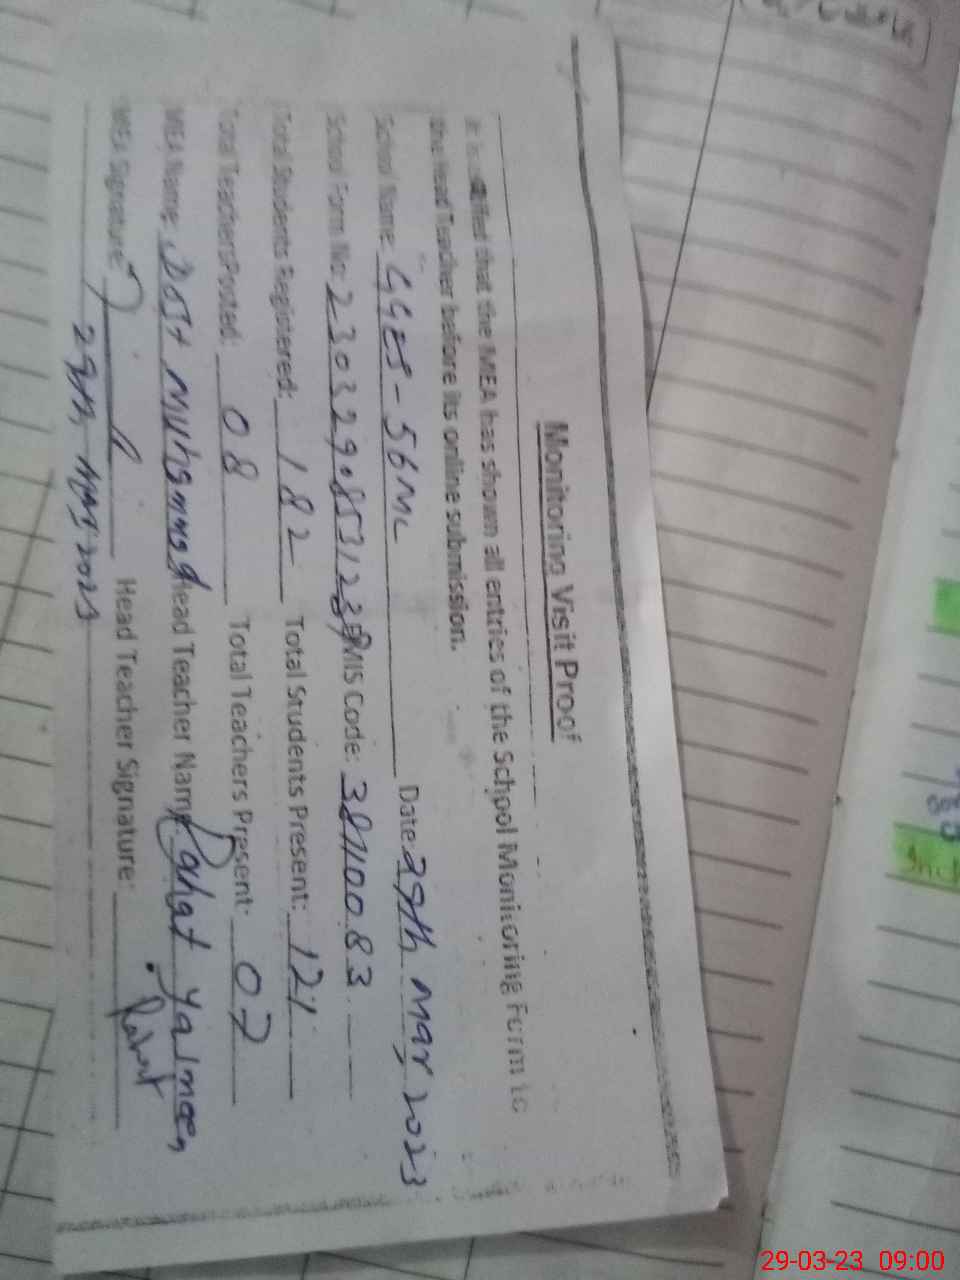 Monitoring Visit Proof
that the MEA has shown all entries of the School Monitoring Form to
the Head Teacher before its online submission.
School Name: GGES - 56 MC Date: 29th Mar, 2023
School Form No: EMIS Code:
Total Students Registered: 182 Total Students Present: 121
Total Teachers Posted: 08 Total Teachers Present: 07
MEA Name: Dost Muhammad Head Teacher Name: Rahat Yasmeen
MEA Signature: Head Teacher Signature: Rahat
29th Mar, 2023
29-03-23 09:00